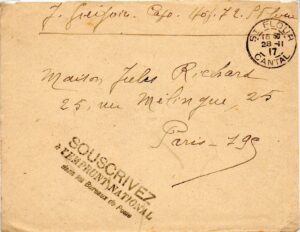 J. Grégoire. Capo. Hos. 72. St Flour
ST FLOUR
18 30
28-11
17
CANTAL
Maison Jules Richard
25, rue Mélingue, 25
Paris-19e
SOUSCRIVEZ
à L'EMPRUNT NATIONAL
dans les Bureaux de Poste